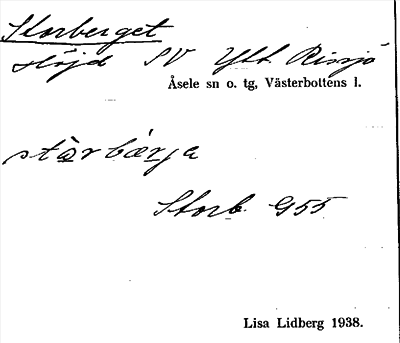 Storberget
höjd SV Ytt. Rissjö
Åsele sn o. tg, Västerbottens l.
stòrbǽrja
Storb. G55
Lisa Lidberg 1938.